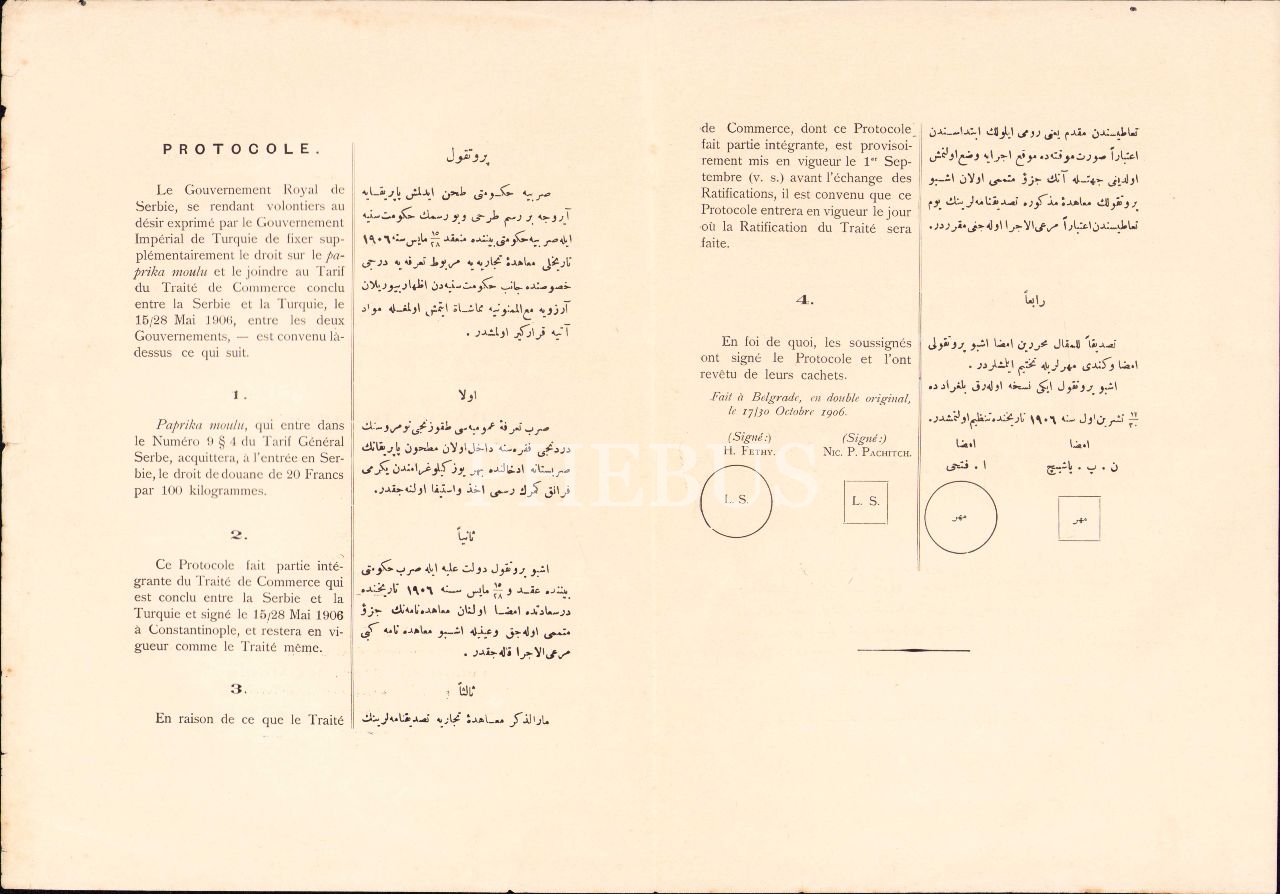 PROTOCOLE.
Le Gouvernement Royal de
Serbie, se rendant volontiers au
désir exprimé par le Gouvernement
Impérial de Turquie de fixer sup-
plémentairement le droit sur le pa-
prika moulu et le joindre au Tarif
du Traité de Commerce conclu
entre la Serbie et la Turquie, le
15/28 Mai 1906, entre les deux
Gouvernements, — est convenu là-
dessus ce qui suit.
1.
Paprika moulu, qui entre dans
le Numéro 9 § 4 du Tarif Général
Serbe, acquittera, à l'entrée en Ser-
bie, le droit de douane de 20 Francs
par 100 kilogrammes.
2.
Ce Protocole fait partie inté-
grante du Traité de Commerce qui
est conclu entre la Serbie et la
Turquie et signé le 15/28 Mai 1906
à Constantinople, et restera en vi-
gueur comme le Traité même.
3.
En raison de ce que le Traité
پروتقول
صربیه حکومتی طحن ایدلمش پاپریقایه
آیروجه بر رسم طرحی وبو رسمك حکومت سنیه
ایله صربیه حکومتی بیننده منعقد ١٥/٢٨ مایس سنه ١٩٠٦
تاریخلی معاهدهٔ تجاریه یه مربوط تعرفه یه درجی
خصوصنده جانب حکومت سنیه دن اظهار بیوریلان
آرزویه مع الممنونیه مماشاة ایتمش اولمغله مواد
آتیه قرارگیر اولمشدر .
اولا
صرب تعرفهٔ عمومیه سی طقوزنجی نومروسنك
دردنجی فقره سنه داخل اولان مطحون پاپریقانك
صربستانه ادخالنده بهر یوز کیلوغرامندن یکرمی
فرانق کمرك رسمی اخذ واستیفا اولنه جقدر.
ثانیاً
اشبو پروتقول دولت علیه ایله صرب حکومتی
بیننده عقد و ١٥/٢٨ مایس سنه ١٩٠٦ تاریخنده
درسعادتده امضا اولنان معاهده نامه نك جزؤ
متممی اوله جق وعینیله اشبو معاهده نامه کبی
مرعی الاجرا قاله جقدر .
ثالثاً
مارالذکر معاهدهٔ تجاریه تصدیقنامه لرینك
de Commerce, dont ce Protocole
fait partie intégrante, est provisoi-
rement mis en vigueur le 1er Sep-
tembre (v. s.) avant l'échange des
Ratifications, il est convenu que ce
Protocole entrera en vigueur le jour
où la Ratification du Traité sera
faite.
4.
En foi de quoi, les soussignés
ont signé le Protocole et l'ont
revêtu de leurs cachets.
Fait à Belgrade, en double original,
le 17/30 Octobre 1906.
(Signé:) (Signé:)
H. Fethy. Nic. P. Pachitch.
L. S. L. S.
تعاطیسندن مقدم یعنی رومی ایلولك ابتداسندن
اعتباراً صورت موقته ده موقع اجرایه وضع اولنمش
اولدیغی جهتله آنك جزؤ متممی اولان اشبو
پروتقولك معاهدهٔ مذکوره تصدیقنامه لرینك یوم
تعاطیسندن اعتباراً مرعی الاجرا اوله جغی مقرردر.
رابعاً
تصدیقاً للمقال محررین امضا اشبو پروتقولی
امضا وکندی مهرلریله تختیم ایلشلردر .
اشبو پروتقول ایکی نسخه اوله رق بلغرادده
١٧/٣٠ تشرین اول سنه ١٩٠٦ تاریخنده تنظیم اولنمشدر.
امضا امضا
ن . پ . پاشیچ ا . فتحی
مهر مهر
PHEBUS